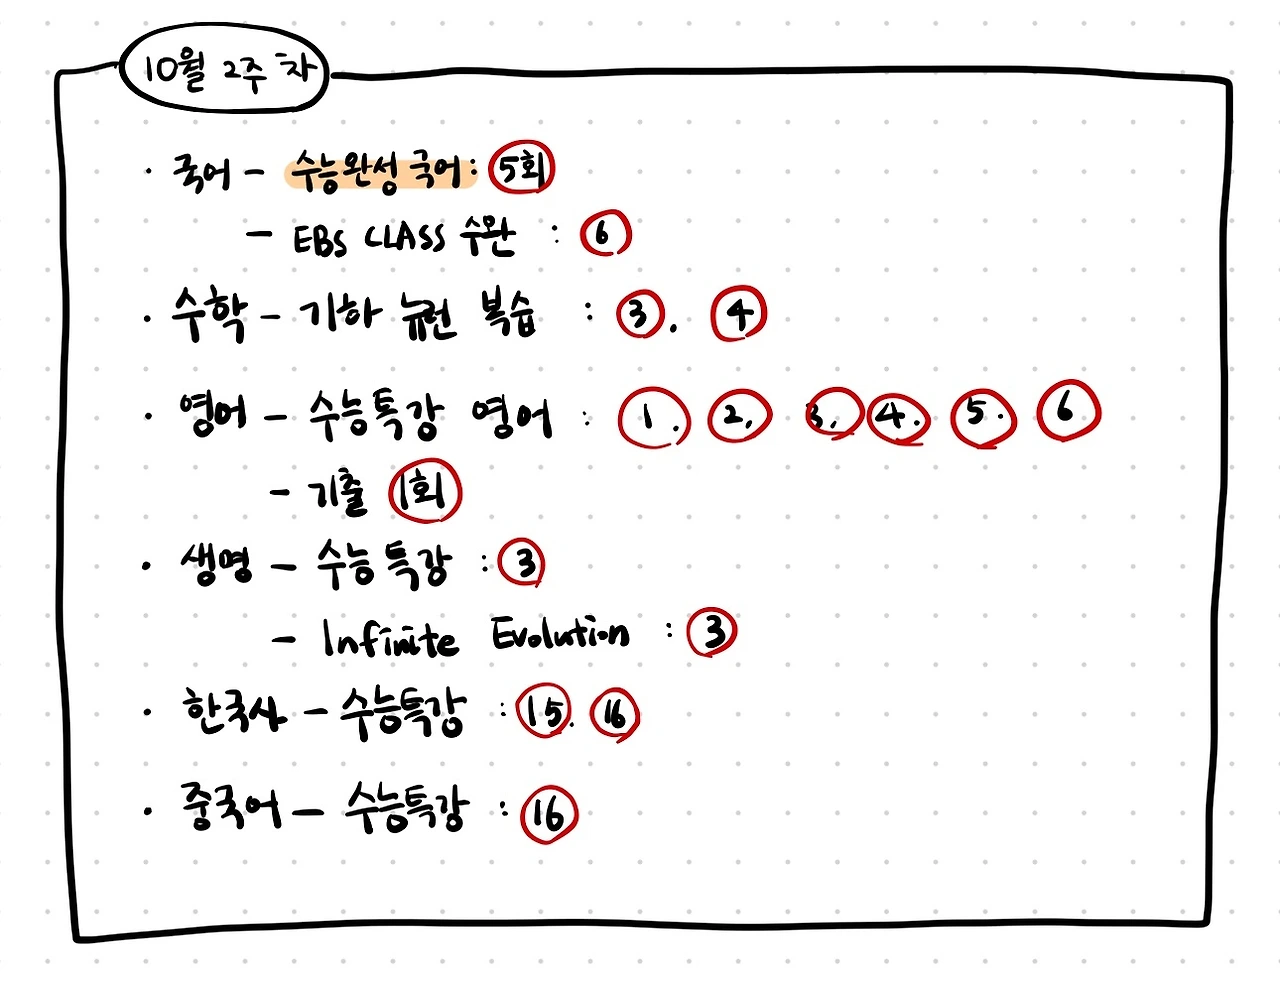 10월 2주차
· 국어 - 수능완성 국어 : 5회
- EBS CLASS 수완 : 6
· 수학 - 기하 뉴런 복습 : 3. 4
· 영어 - 수능특강 영어 : 1. 2, 3, 4. 5. 6
- 기출 1회
· 생명 - 수능특강 : 3
- Infinite Evolution : 3
· 한국사 - 수능특강 : 15. 16
· 중국어 - 수능특강 : 16